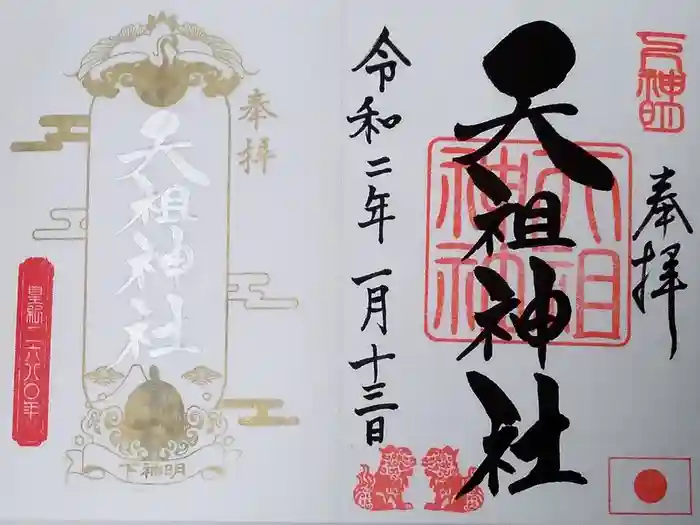 下神明
奉拝
天祖神社
天祖神社
令和二年 一月 十三日
奉拝
天祖神社
皇紀二六八〇年
下神明